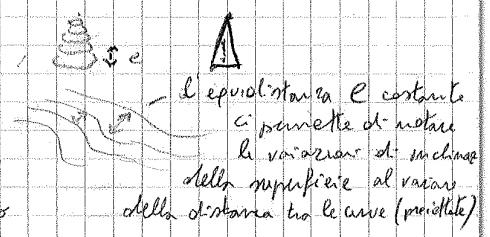 e
L'equidistanza e costante
ci permette di notare
le variazioni di inclinaz
della superficie al variare
della distanza tra le curve (proiettate)